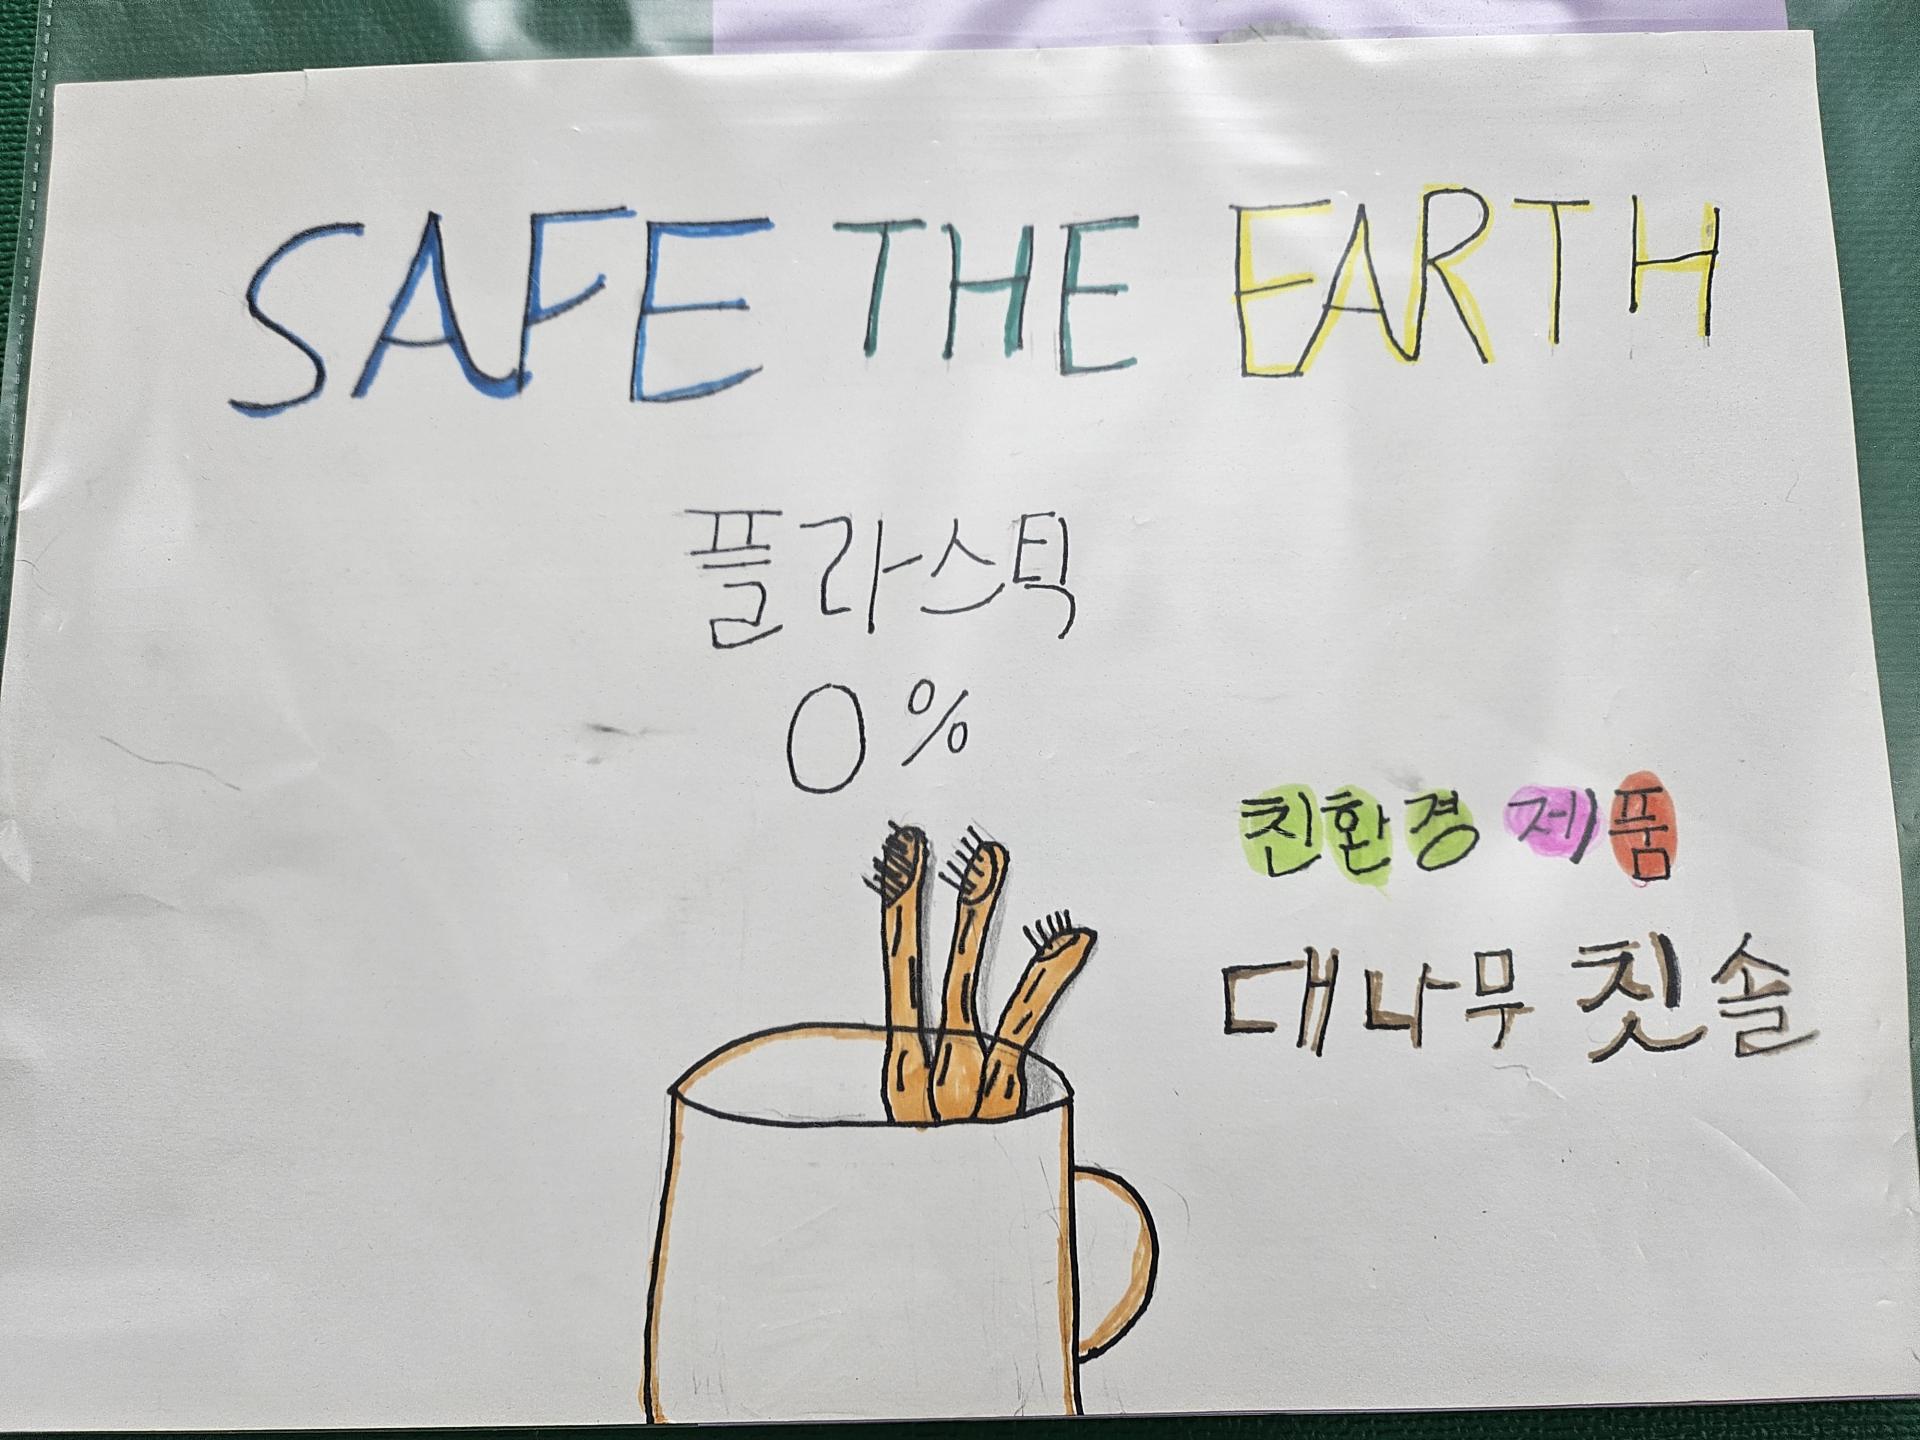 SAFE THE EARTH
플라스틱
0%
친환경 제품
대나무 칫솔